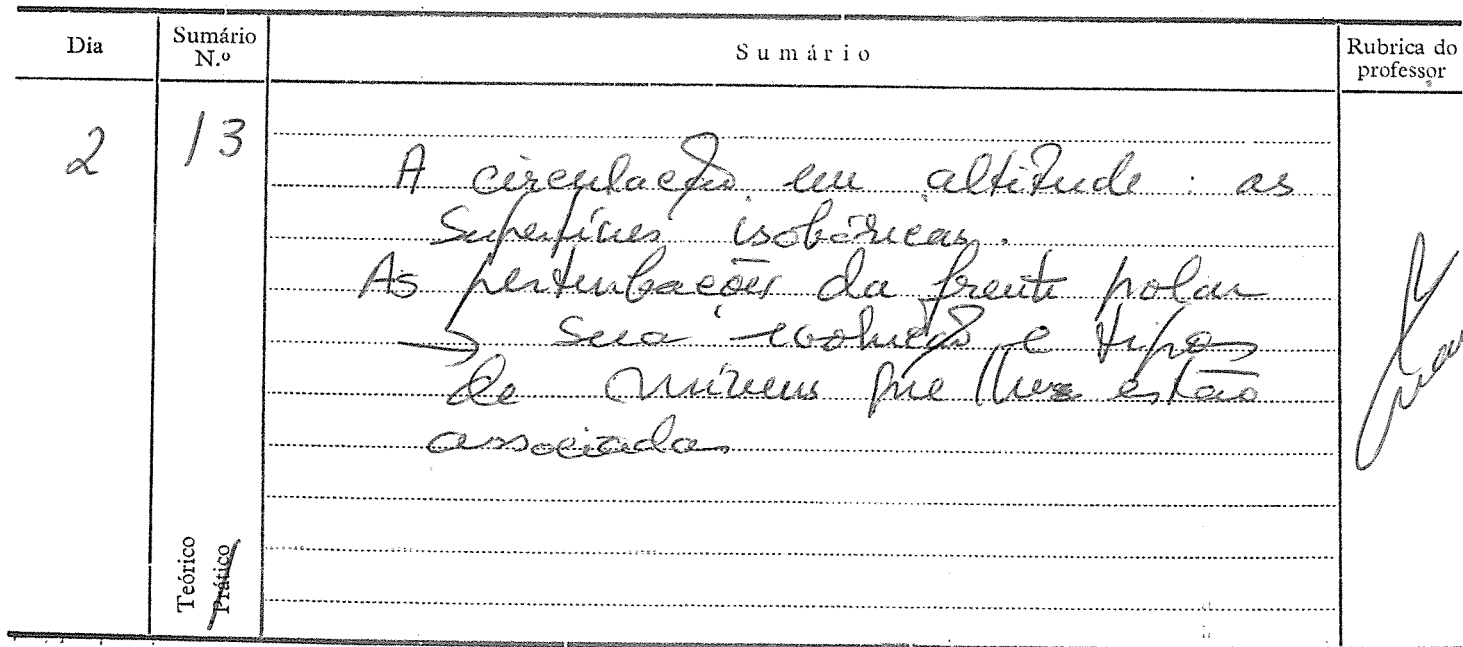 Dia
Sumário N.º
Sumário
Rubrica do professor
2
13
A circulação em altitude: as
Superfícies isobáricas.
As perturbações da frente polar
→ Sua evolução e tipos
de nuvens que lhes estão
associadas
Teórico
Prático